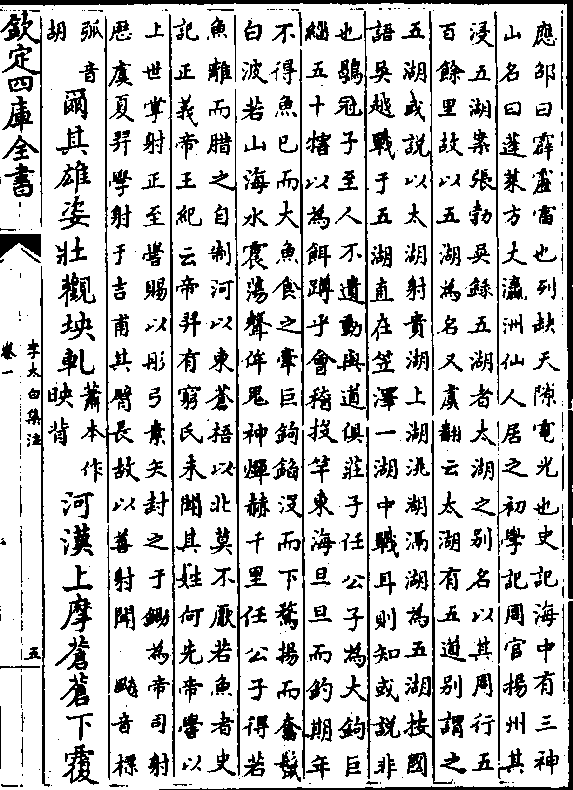 應邵曰霹靂雷也列缺天隙電光也史記海中有三神
山名曰蓬萊方丈瀛洲仙人居之初學記周官揚州其
浸五湖案張勃吳録五湖者太湖之别名以其周行五
百餘里故以五湖為名又虞翻云太湖有五道别謂之
五湖或説以太湖射貴湖上湖洮湖滆湖為五湖按國
語吳越戰于五湖直在笠澤一湖中戰耳則知或説非
也鶡冠子至人不遺動與道俱莊子任公子為大鉤巨
緇五十犗以為餌蹲乎會稽投竿東海旦旦而釣期年
不得魚已而大魚食之牽巨鉤錎没而下驁揚而奮鬐
白波若山海水震蕩聲侔鬼神燀赫千里任公子得若
魚離而腊之自制河以東蒼梧以北莫不厭若魚者史
記正義帝王紀云帝羿有窮氏未聞其姓何先帝嚳以
上世掌射正至嚳賜以彤弓素矢封之于鋤為帝司射
歴虞夏羿學射于吉甫其臂長故以善射聞 𩗺音標
弧音胡
爾其雄姿壯觀坱軋蕭本作映背河漢上摩蒼蒼下覆
欽定四庫全書
李太白集注
卷一
五